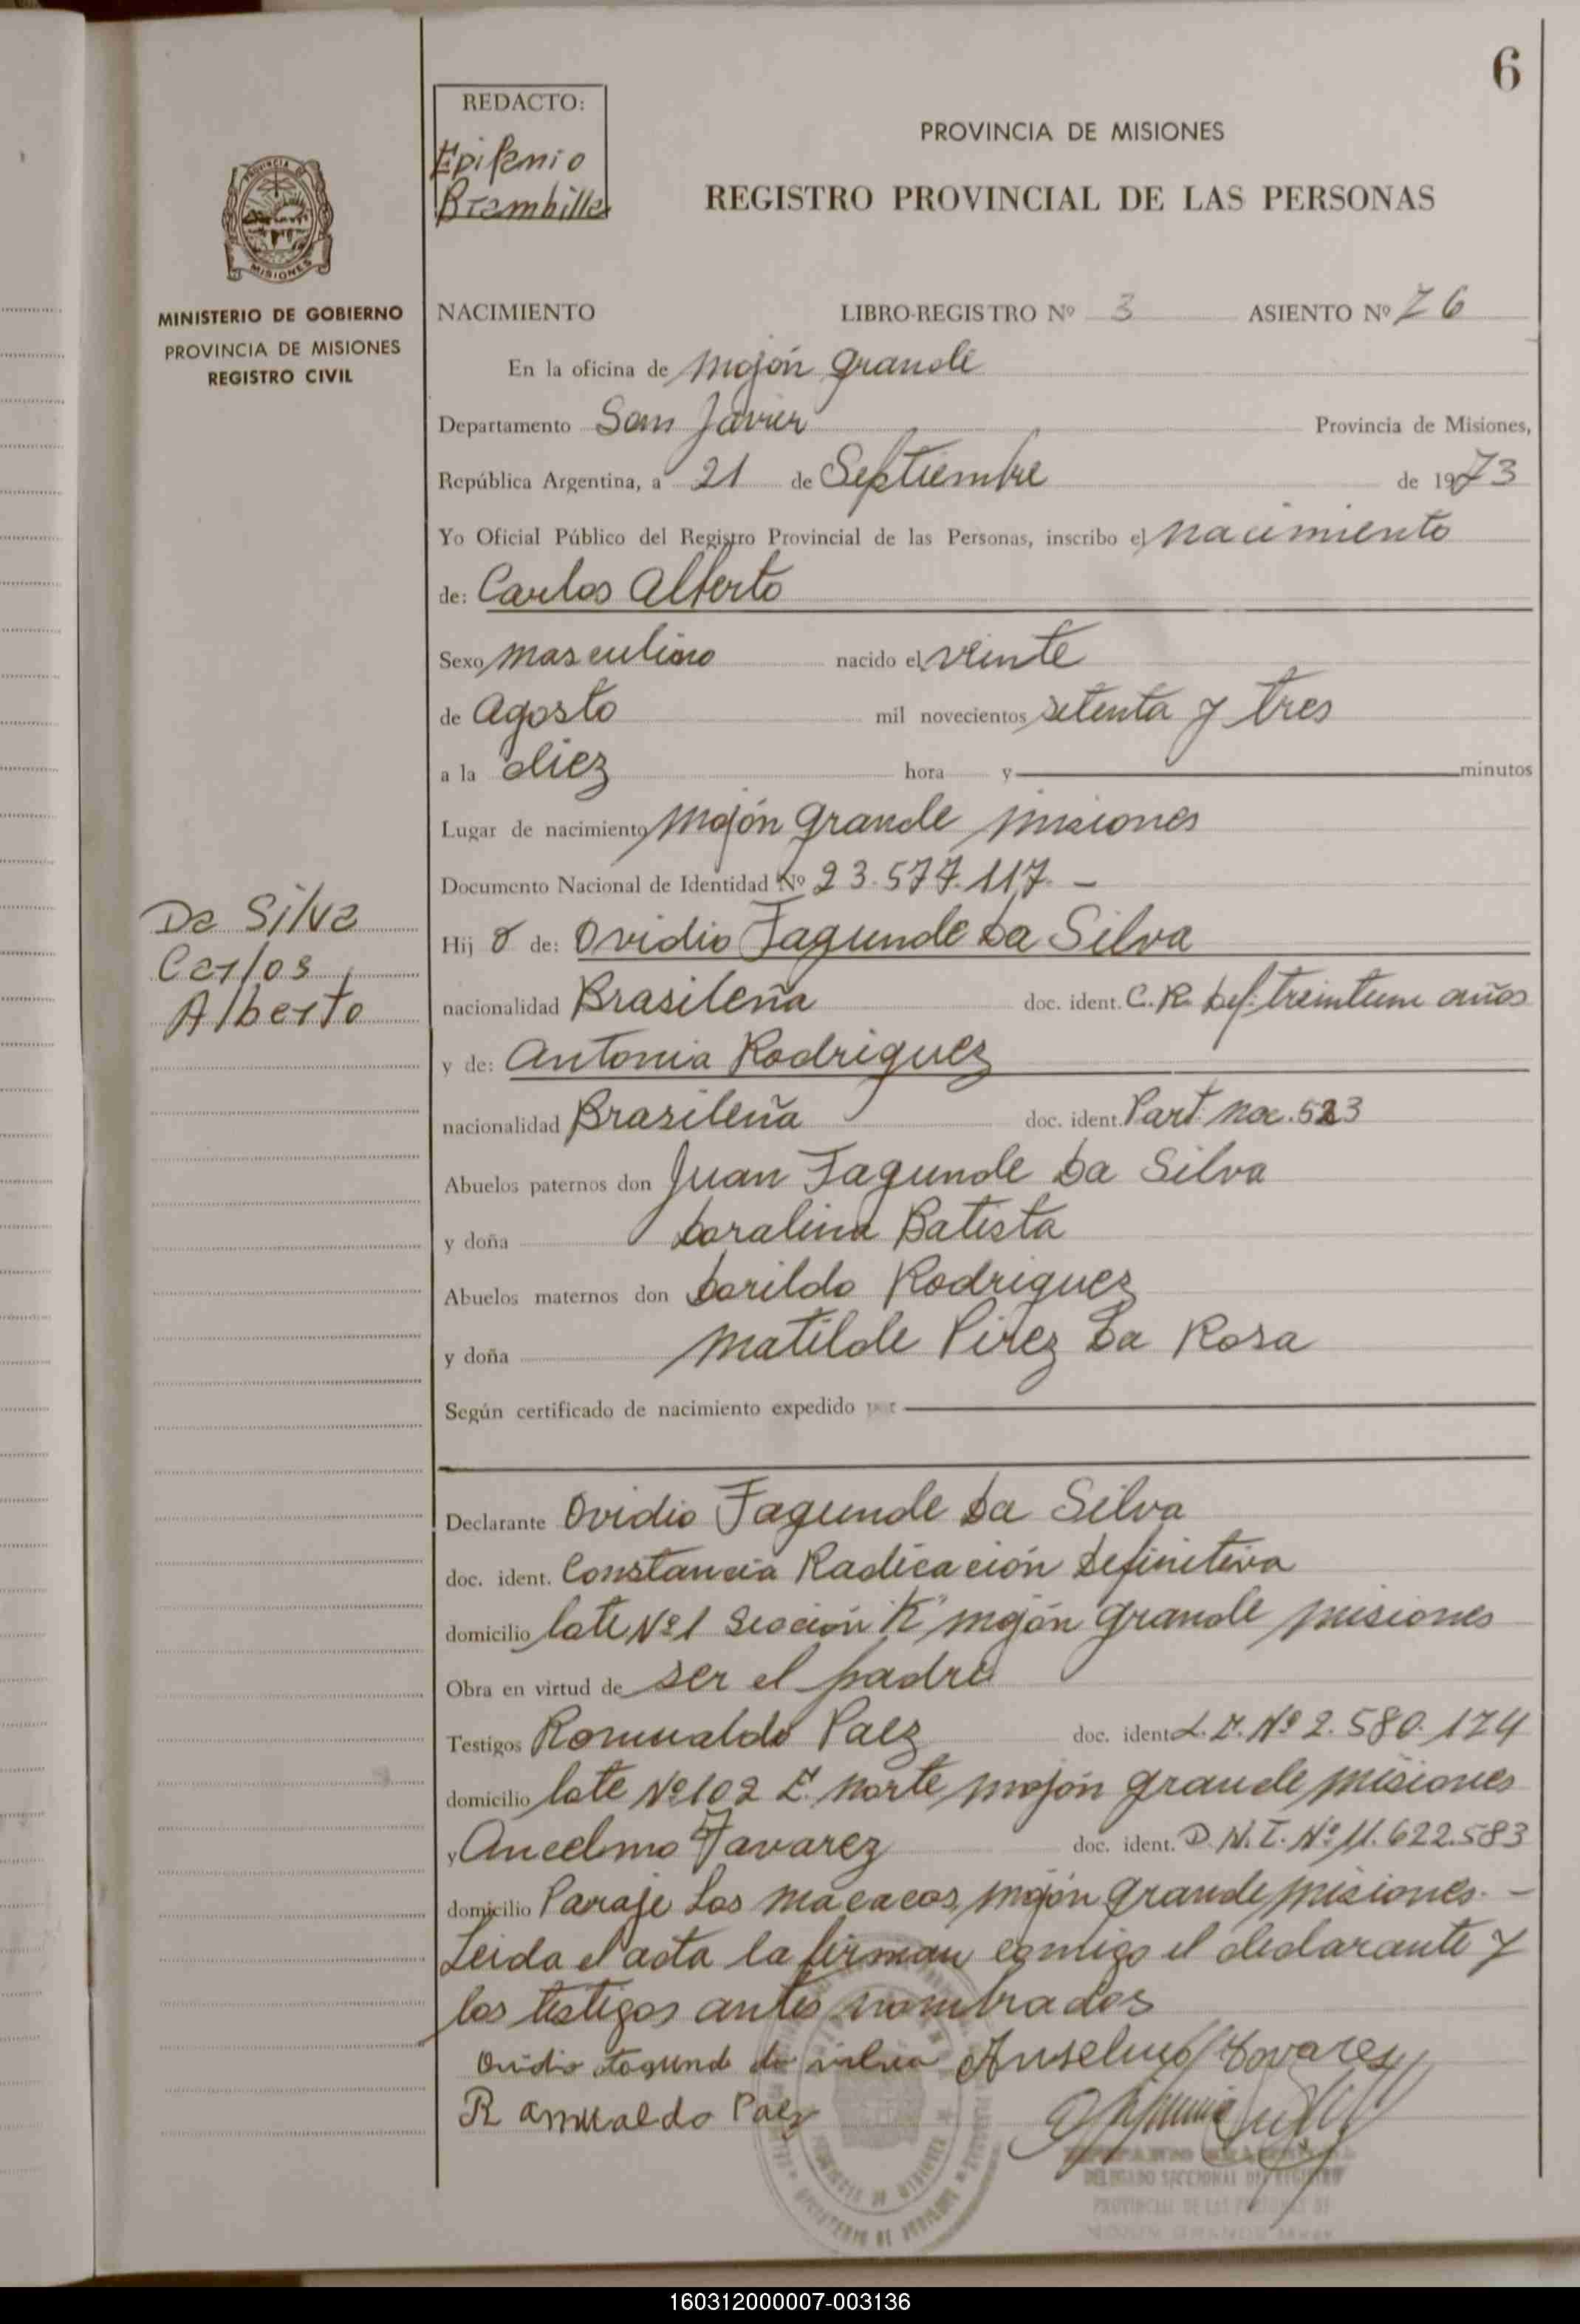 6
REDACTO:
Epifanio
Brambilla
PROVINCIA DE MISIONES
REGISTRO PROVINCIAL DE LAS PERSONAS
PROVINCIA DE
MISIONES
MINISTERIO DE GOBIERNO
PROVINCIA DE MISIONES
REGISTRO CIVIL
NACIMIENTO LIBRO-REGISTRO Nº 3 ASIENTO Nº 76
En la oficina de Mojón Grande
Departamento San Javier Provincia de Misiones,
República Argentina, a 21 de Septiembre de 1973
Yo Oficial Público del Registro Provincial de las Personas, inscribo el nacimiento
de: Carlos Alberto
Sexo masculino nacido el veinte
de Agosto mil novecientos setenta y tres
a la diez hora y minutos
Lugar de nacimiento Mojón Grande Misiones
Documento Nacional de Identidad Nº 23.577.117.-
Da Silva
Carlos
Alberto
Hijo de: Ovidio Fagunde Da Silva
nacionalidad Brasileña doc. ident. C.R. Def. treintiun años
y de: Antonia Rodriguez
nacionalidad Brasileña doc. ident. Part. nac. 523
Abuelos paternos don Juan Fagunde Da Silva
y doña Doralina Batista
Abuelos maternos don Dorildo Rodriguez
y doña Matilde Pirez Da Rosa
Según certificado de nacimiento expedido por
Declarante Ovidio Fagunde Da Silva
doc. ident. Constancia Radicación Definitiva
domicilio lote Nº 1 Sección "K" Mojón Grande Misiones
Obra en virtud de ser el padre
Testigos Romualdo Paez doc. ident. Nº 2.580.174
domicilio lote Nº 102 Z. norte Mojón Grande Misiones
y Ancelmo Tavarez doc. ident. D.N.I. Nº 11.622.583
domicilio Paraje Los Macacos, Mojón Grande, Misiones.-
Leida el acta la firman conmigo el declarante y
los testigos antes nombrados
Ovidio Fagund da silva Anselmo Tavarez
Ramualdo Paez
DELEGADO SECCIONAL DEL REGISTRO
PROVINCIAL DE LAS PERSONAS DE
MOJON GRANDE
160312000007-003136